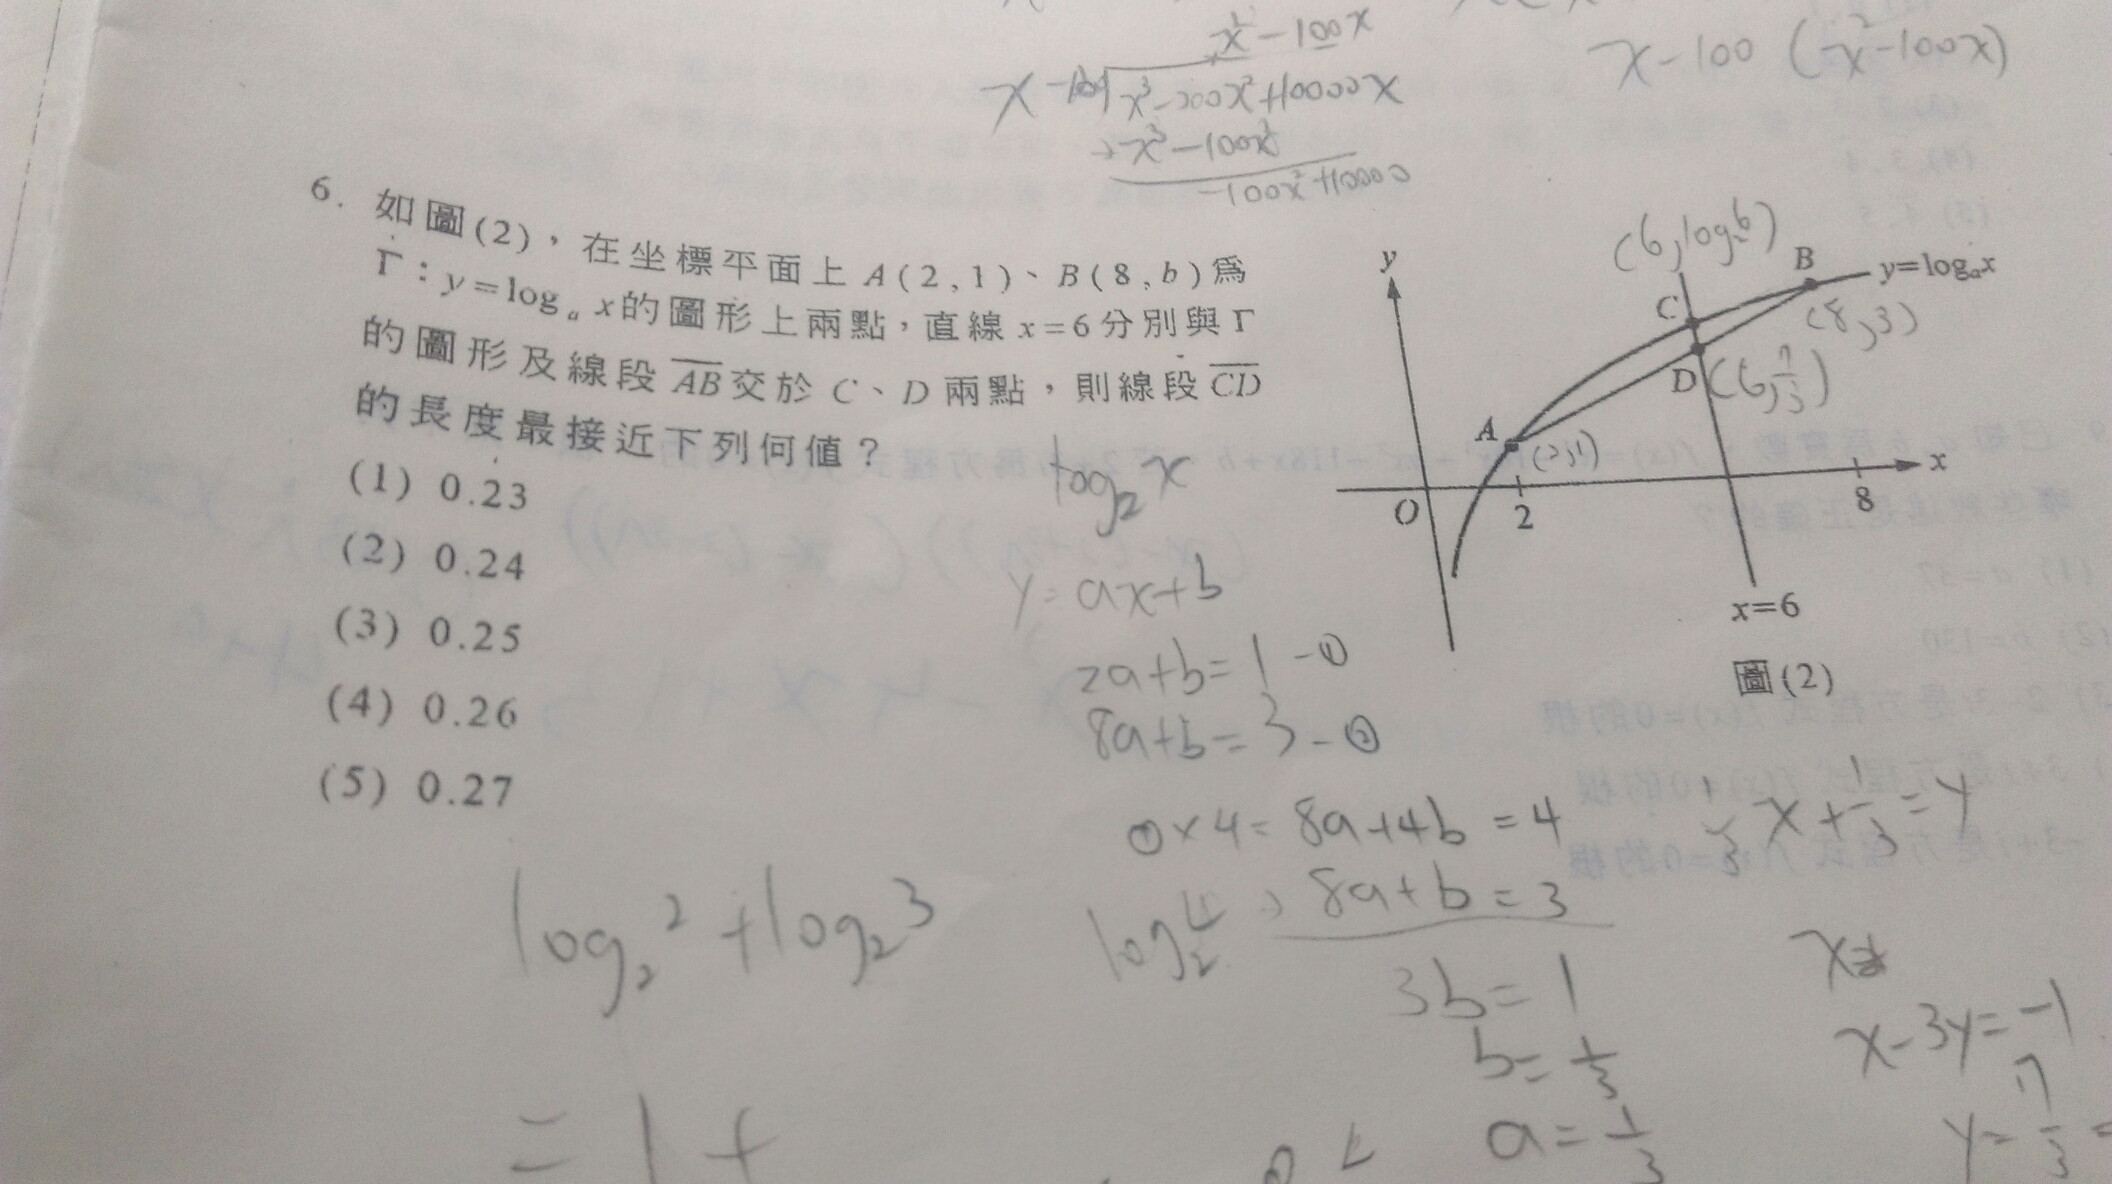 x² - 100x
x - 100 x³ - 200x² + 10000x
x³ - 100x²
-100x² + 10000
x - 100 (x² - 100x)
6. 如圖(2),在坐標平面上 A(2,1)、B(8,b)為
Γ:y=logₐ x的圖形上兩點,直線 x=6分別與Γ
的圖形及線段AB交於 C、D 兩點,則線段CD
的長度最接近下列何值?
(1) 0.23
(2) 0.24
(3) 0.25
(4) 0.26
(5) 0.27
(6, log₂6)
y
C
B
y=logₐx
(8,3)
D (6, 7/3)
A (2,1)
x
O
2
8
x=6
圖(2)
log₂ x
y = ax+b
2a+b=1 -①
8a+b=3 -②
①×4= 8a+4b=4
8a+b=3
3b=1
b=1/3
a=1/3
1/3 x + 1/3 = y
x - 3y = -1
y = 7/3 =
log₂ 4
log₂ 2 + log₂ 3
= 1 +